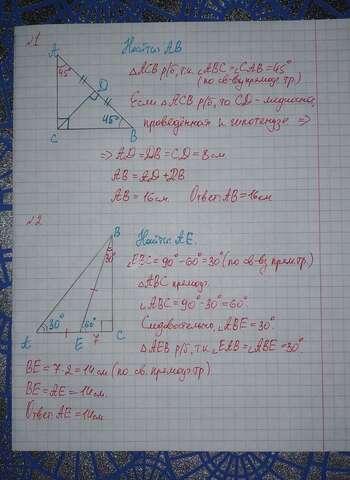 №1
Найти AB
A
45°
D
45°
C
B
△ACB р/б, т.к. ∠ABC = ∠CAB = 45°
(по св-ву прямоуг. тр)
Если △ACB р/б, то CD - медиана,
проведённая к гипотенузе ⇒
⇒ AD = DB = CD = 8 см
AB = AD + DB
AB = 16 см. Ответ: AB = 16 см
№2
Найти AE.
B
30°
30°
60°
A
E
7
C
∠EBC = 90° - 60° = 30° (по св-ву прям. тр.)
△ABC прямоуг.
∠ABC = 90° - 30° = 60°
Следовательно, ∠ABE = 30°
△AEB р/б, т.к. ∠EAB = ∠ABE = 30°
BE = 7 · 2 = 14 см (по св. прямоуг тр)
BE = AE = 14 см.
Ответ: AE = 14 см.